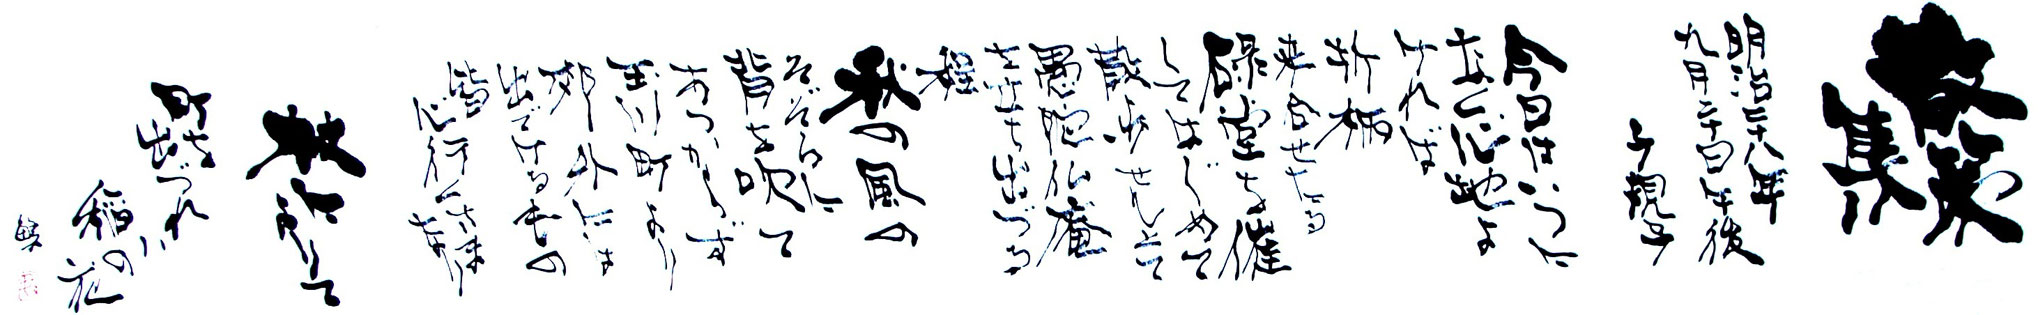 散策
集
明治二十八年
九月二十日午後
子規子
今日はいつに
なく心地よ
ければ
折柄
来合せたる
碌堂を催
してはじめて
散歩せんとて
愚陀仏庵
を立ち出づる
程
秋の風の
そぞろに
背を吹て
あつからず
玉川町より
郊外には
出でける見るもの
皆心行くさまなり
杖によりて
町を
出づれば
稲の花